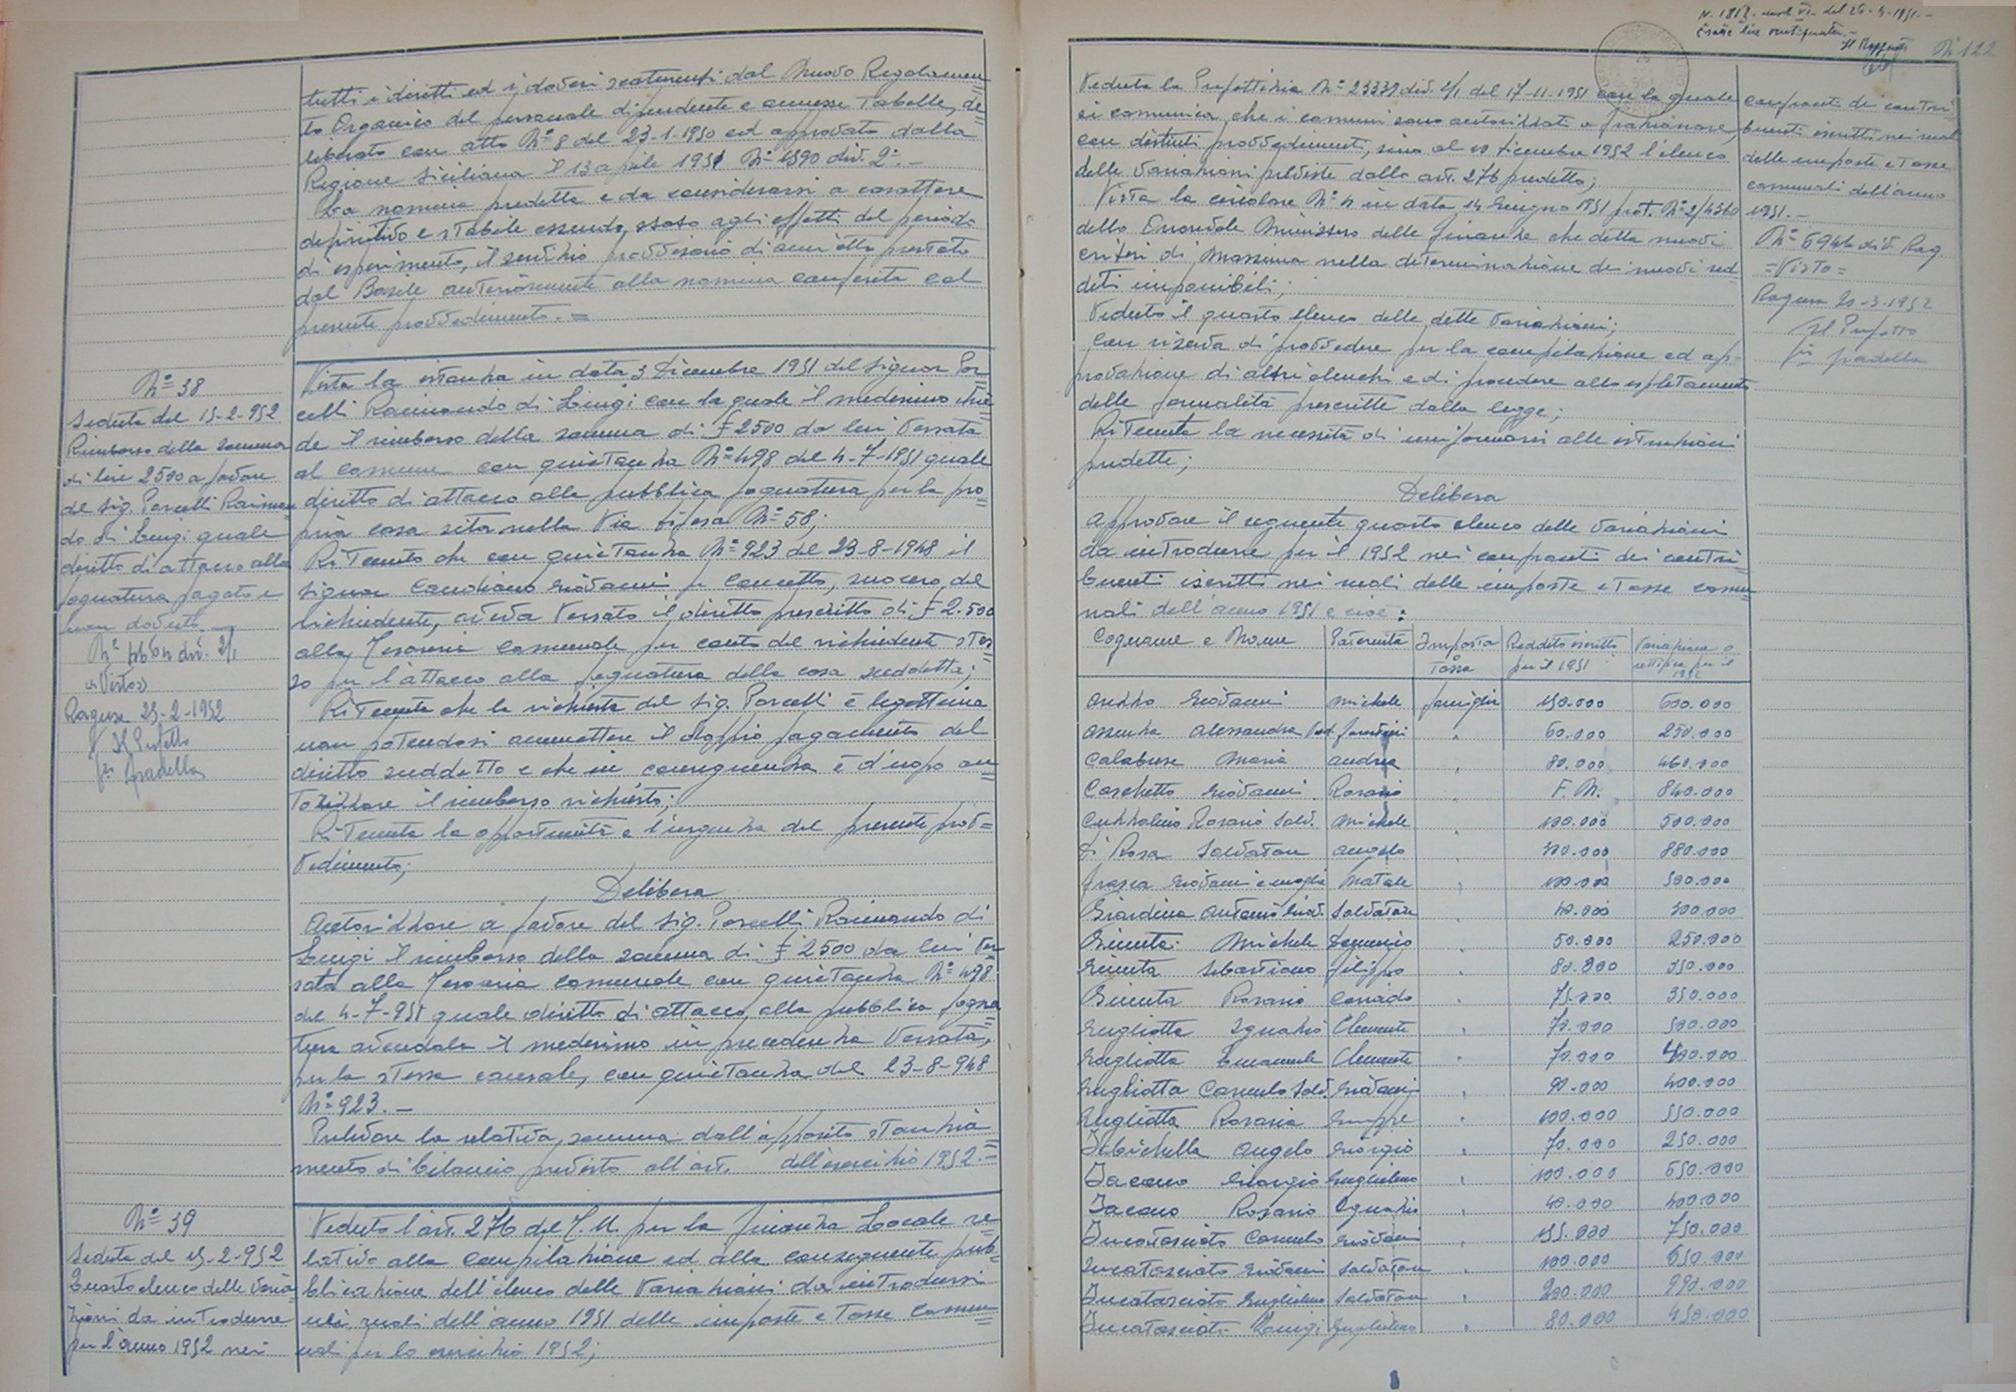 tutti i diritti ed i doveri scaturenti dal nuovo Regolamen=
to Organico del personale dipendente e annesse Tabelle, de=
liberato con atto N° 8 del 23-1-1950 ed approvato dalla
Regione Siciliana il 13 aprile 1951 N° 1590 div. 2ª.-
La nomina predetta e da considerarsi a carattere
definitivo e stabile essendo stato agli effetti del periodo
di esperimento, il servizio provvisorio di anni otto prestato
dal Basile anteriormente alla nomina conferita col
presente provvedimento.=
N° 38
Seduta del 15-2-952
Rimborso della somma
di lire 2500 a favore
del sig. Porcelli Raimon
do di Luigi quale
diritto di attacco alla
fognatura pagato e
non dovuto.-
div. 2/1
=Visto=
Ragusa 25-2-1952
Il Prefetto
Vista la istanza in data 3 Dicembre 1951 del signor Por
celli Raimondo di Luigi con la quale il medesimo chie
de il rimborso della somma di £ 2500 da lui versata
al comune con quietanza N° 498 del 4-7-1951 quale
diritto di attacco alla pubblica fognatura per la pro=
pria casa sita nella Via N° 58;
Ritenuto che con quietanza N° 923 del 23-8-1948 il
signor Giovanni fu Concetto, suocero del
richiedente, aveva versato il diritto prescritto di £ 2.500
alla Tesoreria Comunale per conto del richiedente stes
so per l'attacco alla fognatura della casa suddetta;
Ritenuto che la richiesta del sig. Porcelli è legittima
non potendosi ammettere il doppio pagamento del
diritto suddetto e che in conseguenza è d'uopo au
torizzare il rimborso richiesto;
Ritenuta la opportunità e l'urgenza del presente prov=
vedimento;
Delibera
Autorizzare a favore del sig. Porcelli Raimondo di
Luigi il rimborso della somma di £ 2500 da lui ver
sata alla Tesoreria comunale con quietanza N° 498
del 4-7-951 quale diritto di attacco alla pubblica fogna
tura avendola il medesimo in precedenza versata,
per la stessa causale, con quietanza del 23-8-948
N° 923.-
Prelevare la relativa somma dall'apposito stanzia
mento di bilancio previsto all'art. dell'esercizio 1952.=
N° 39
Seduta del 15-2-952
Quarto elenco delle varia
zioni da introdurre
per l'anno 1952 nei
Veduto l'art. 276 del T.U. per la finanza Locale re
lativo alla compilazione ed alla conseguente pub=
blicazione dell'elenco delle variazioni da introdursi
nei ruoli dell'anno 1951 delle imposte e tasse comu
nali per lo esercizio 1952;
N° 122
Veduta la Prefettizia N° 23339 div. 2/1 del 17-11-1951 con la quale
si comunica che i comuni sono autorizzati a frazionare,
con distinti provvedimenti, sino al dicembre 1952 l'elenco
delle variazioni previste dallo art. 276 predetto;
Vista la circolare N° 4 in data 14 Giugno 1951 prot. N° 2/4360
dello Onorevole Ministero delle finanze che detta nuovi
criteri di massima nella determinazione dei nuovi red
diti imponibili;
Veduto il quarto elenco delle dette variazioni;
Con riserva di provvedere per la compilazione ed ap-
provazione di altri elenchi e di procedere allo espletamento
delle formalità prescritte dalla legge;
Ritenuta la necessità di uniformarsi alle istruzioni
predette;
Delibera
Approvare il seguente quarto elenco delle variazioni
da introdurre per il 1952 nei confronti dei contri=
buenti iscritti nei ruoli delle imposte e tasse comu
nali dell'anno 1951 e cioè:
confronti dei contri
buenti iscritti nei ruoli
delle imposte e tasse
comunali dell'anno
1951.-
N° 6946 div. Rag.
=Visto=
Ragusa 20-3-1952
Il Prefetto
Cognome e Nome Paternità Imposta Tassa Reddito iscritto per il 1951 Variazione o rettifica per il 1952
Giovanni Michele famiglia 150.000 600.000
Assenza Alessandra 60.000 250.000
Calabrese Maria Andrea 80.000 460.000
Caschetto Giovanni Rosario F.N. 840.000
Cuzzolino Rosario Salv. Michele 100.000 500.000
Di Rosa Salvatore Angelo 300.000 880.000
Frasca Giovanni e moglie Natale 100.000 500.000
Giardina Antonio Salvatore 300.000
Giunta Michele Domenico 50.000 250.000
Giunta Sebastiano Filippo 80.000 350.000
Giunta Rosario Corrado 75.000 350.000
Gugliotta Ignazio Clemente 70.000 500.000
Gugliotta Emanuele Clemente 70.000 400.000
Gugliotta Carmelo Salv. Giovanni 90.000 400.000
Gugliotta Rosaria Giuseppe 100.000 550.000
Angelo Giorgio 70.000 250.000
Iacono Giorgio Guglielmo 100.000 650.000
Iacono Rosario Ignazio 40.000 400.000
Incatasciato Carmelo Giovanni 155.000 750.000
Incatasciato Giovanni Salvatore 100.000 650.000
Incatasciato Guglielmo Salvatore 200.000 990.000
Incatasciato Guglielmo 80.000 450.000